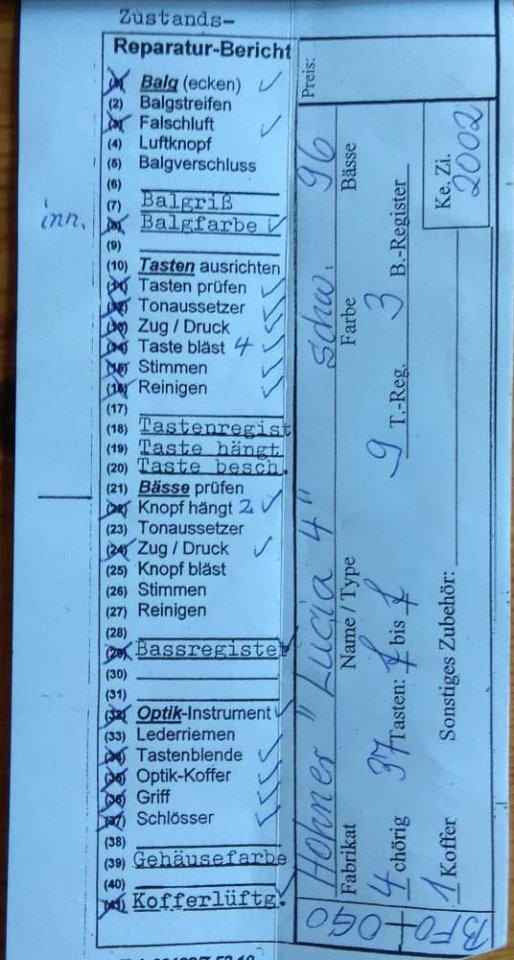 Zustands-
Reparatur-Bericht
(1) Balg (ecken) ✓
(2) Balgstreifen
(3) Falschluft ✓
(4) Luftknopf
(5) Balgverschluss
(6)
(7) Balgriß
inn. (8) Balgfarbe ✓
(9)
(10) Tasten ausrichten
(11) Tasten prüfen ✓
(12) Tonaussetzer ✓
(13) Zug / Druck ✓
(14) Taste bläst 4 ✓
(15) Stimmen ✓
(16) Reinigen ✓
(17)
(18) Tastenregist
(19) Taste hängt
(20) Taste besch.
(21) Bässe prüfen
(22) Knopf hängt 2 ✓
(23) Tonaussetzer
(24) Zug / Druck ✓
(25) Knopf bläst
(26) Stimmen
(27) Reinigen
(28)
(29) Bassregister ✓
(30)
(31)
(32) Optik-Instrument ✓
(33) Lederriemen
(34) Tastenblende ✓
(35) Optik-Koffer ✓
(36) Griff ✓
(37) Schlösser ✓
(38)
(39) Gehäusefarbe
(40)
(41) Kofferlüftg. ✓
Preis:
Hohner "Lucia 4" schw. 96
Fabrikat Name / Type Farbe Bässe
4 chörig 37 Tasten: f bis f 9 T.-Reg. 3 B.-Register
1 Koffer Sonstiges Zubehör:
Ke. Zi.
2002
OGO
BFO